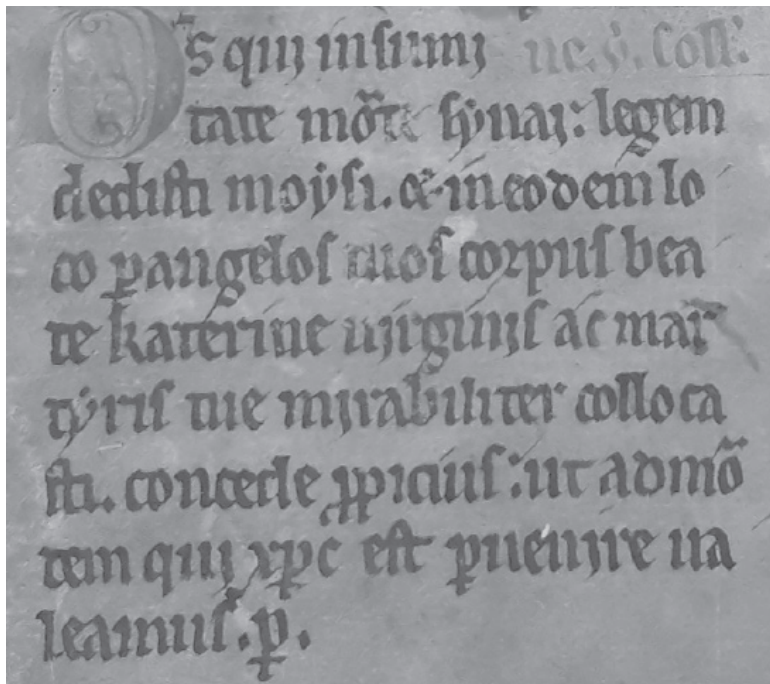 Os qui in summi ue. v. Coll'.
tate mõtis sẏnai: legem
dedisti moẏsi. & in eodem lo
co ꝑ angelos tuos corpus bea
te katerine uirginis ac mar
tẏris tue mirabiliter colloca
sti. concede ꝓpicius: ut ad mõ
tem qui xp̄c est ꝑuenire ua
leamus. ꝑ.